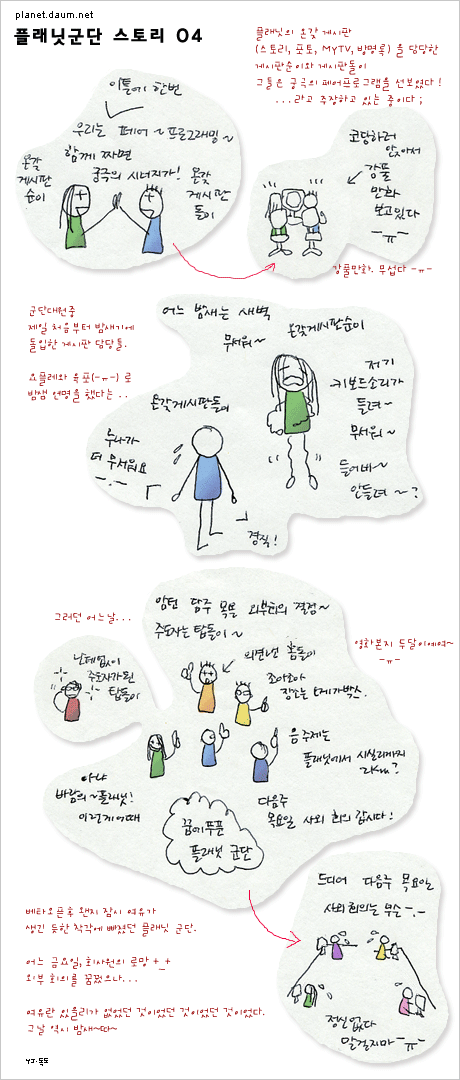 planet.daum.net
플래닛군단 스토리 04
플래닛의 온갖 게시판
(스토리, 포토, MYTV, 방명록) 을 담당한
게시판순이와 게시판돌이
그들은 궁극의 페어프로그램을 선보였다!
...라고 주장하고 있는 중이다;
이틀에 한번
우리는 페어~프로그래밍~
함께 짜면
궁극의 시너지가!
온갖
게시판
순이
온갖
게시판
돌이
코딩하러
앉아서
강풀
만화
보고있다
-ㅠ-
강풀만화. 무섭다 -ㅠ-
군단대원중
제일 처음부터 밤새기에
돌입한 게시판 담당들.
요플레와 육포(-ㅠ-) 로
밤샘 연명을 했다는..
어느 밤새는 새벽
무서워~
온갖게시판순이
저기
키보드소리가
들려~
무서워~
들어봐~
안들려~?
온갖게시판돌이
누나가
더 무서워요
-.-
경직!
그러던 어느날...
난데없이
주도자가된
탑돌이
암턴 담주 목욜 외부회의 결정~
주도자는 탑돌이~
의견낸 홈돌이
조아조아
장소는 토제가박스.
영화본지 두달이에여~
-ㅠ-
음주제는
플래닛에서 시실리까지
2km?
아냐
바람의~플래닛!
이런게어때
다음주
목요일 사외 회의 갑시다!
꿈에부푼
플래닛 군단
베타오픈후 왠지 잠시 여유가
생긴 듯한 착각에 빠졌던 플래닛 군단.
어느 금요일, 회사원의 로망 +_+
외부 회의를 꿈꿨으나...
여유란 있을리가 없었던 것이었던 것이었던 것이었다.
그날 역시 밤새~따~
드디어 다음주 목요일
사외회의는 무슨 -.-
정신없다
말걸지마 -ㅠ-